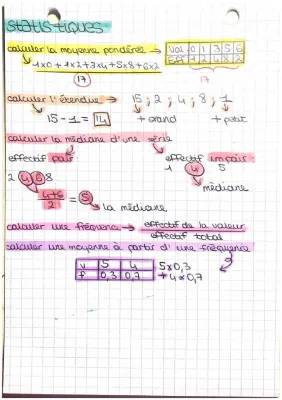 STATISTIQUES
calculer la moyenne pondérée → val 0 1 3 5 6
Eff 1 2 4 8 2
1x0 + 1x2+3x4+5x8+6x2
17 17
calculer l'étendue → 15 ; 2 ; 4 ; 8 ; 1
15 - 1 = 14 + grand + petit
calculer la médiane d'une série
effectif pair effectif impair
2 4 6 8 1 4 5
4+6/2 = 5 médiane
la médiane
calculer une fréquence → effectif de la valeur
effectif total
calculer une moyenne à partir d'une fréquence
v 5 4 5x0,3
f 0,3 0,7 + 4x0,7